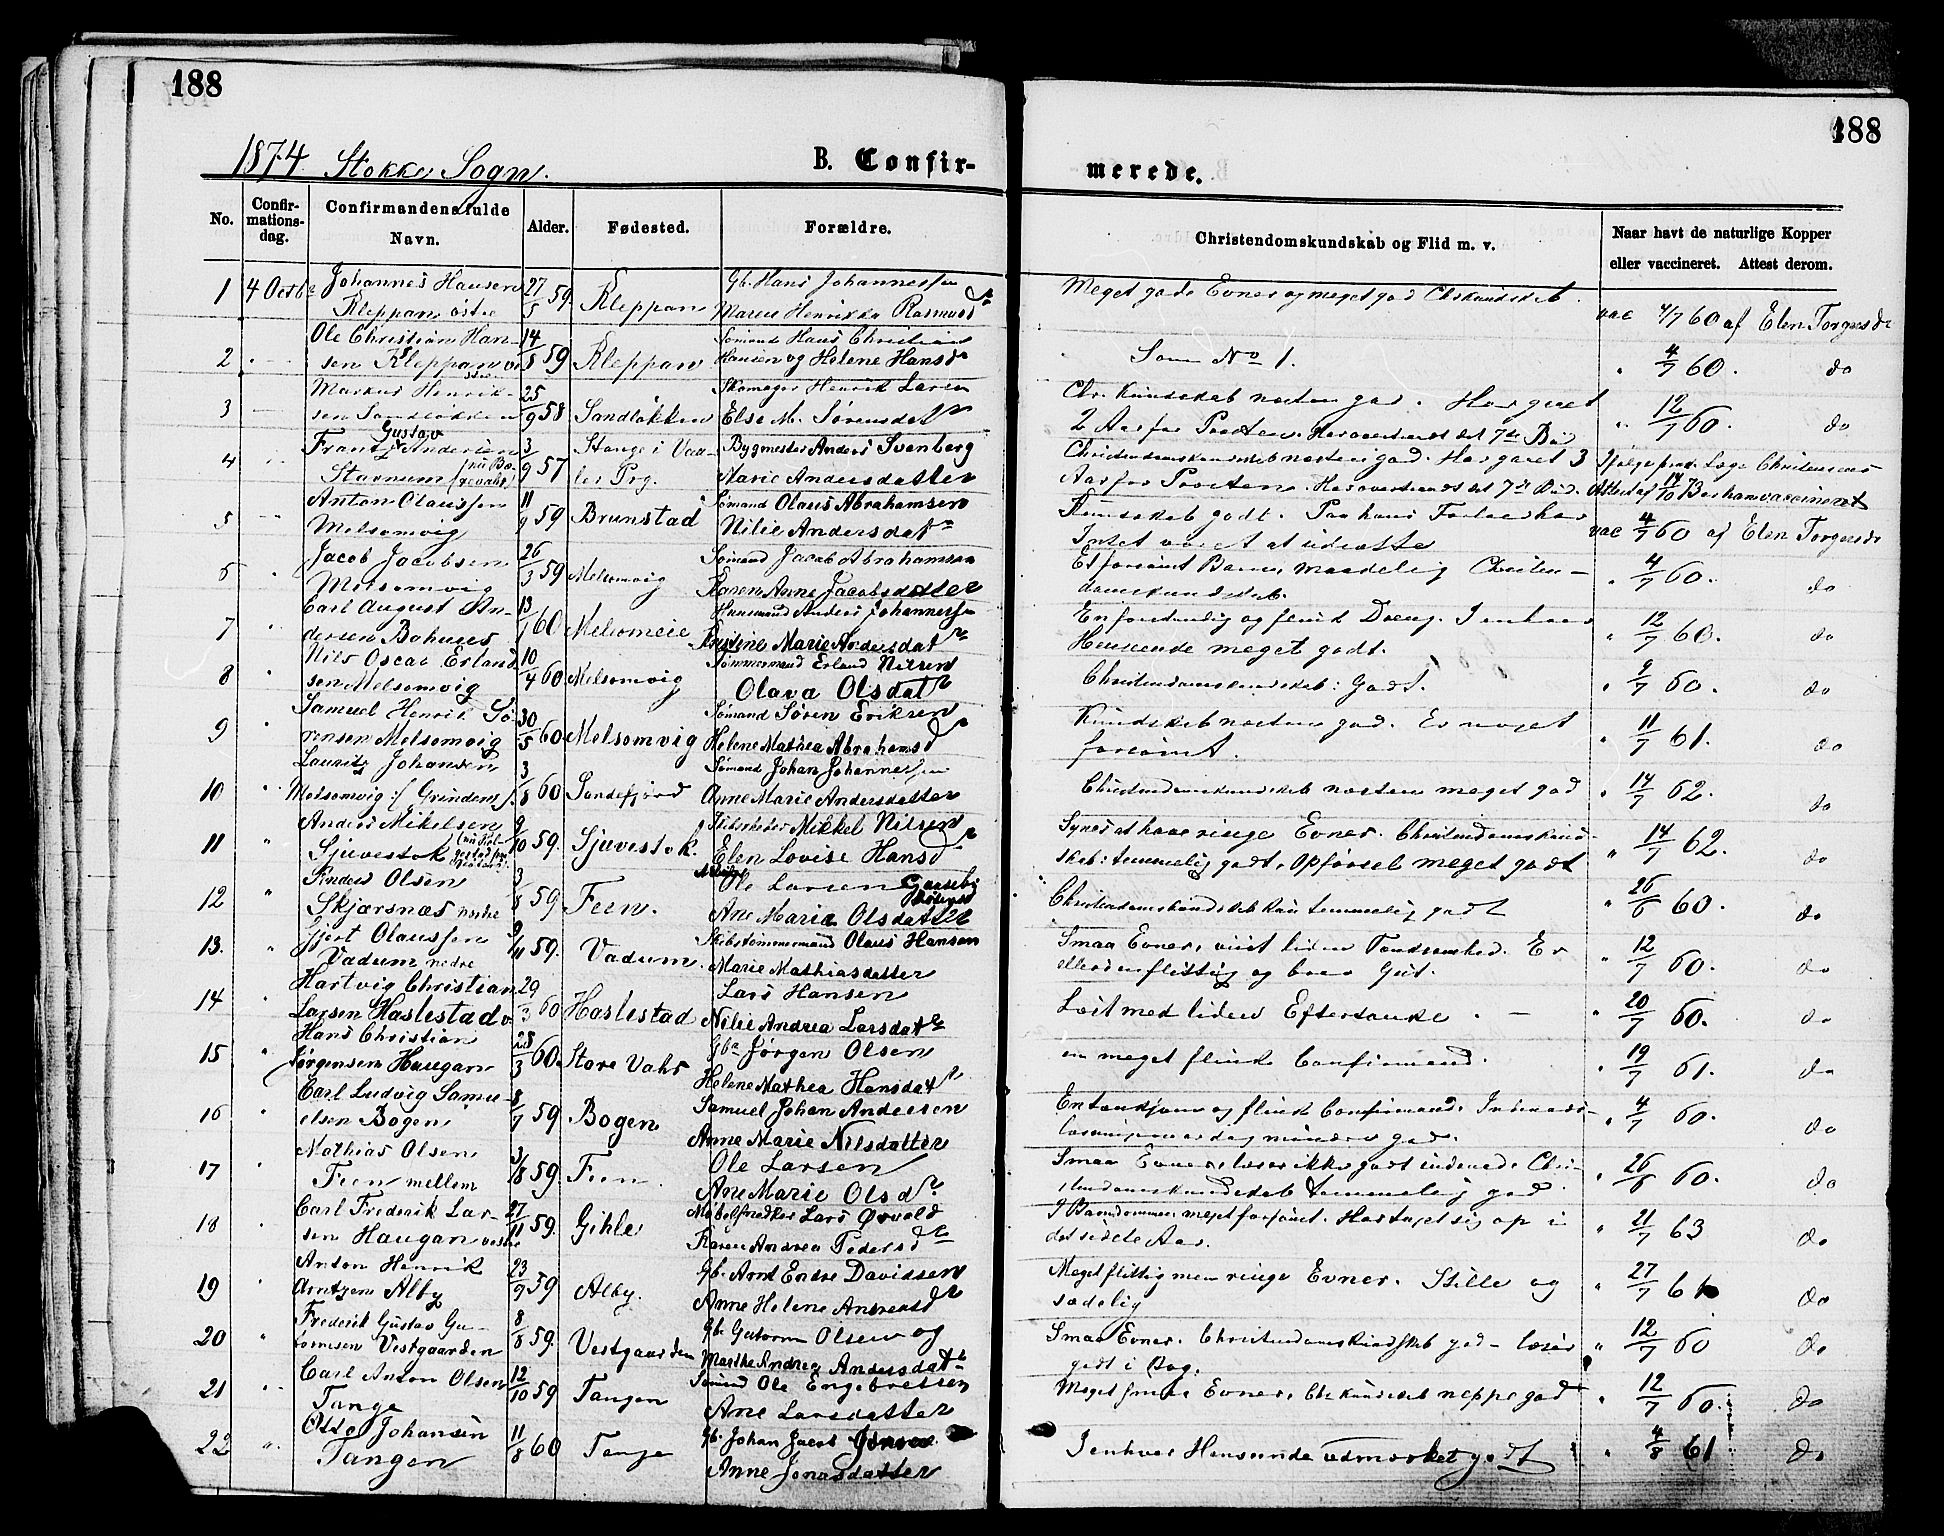 188
188
1874 Stokke Sogn.
B. Confir-
merede.
No.
Confir-
mations-
dag.
Confirmandens fulde
Navn.
Alder.
Fødested.
Forældre.
Christendomskundskab og Flid m. v.
Naar havt de naturlige Kopper
eller vaccineret. Attest derom.
1 4 Octbr Johannes Hansen 27/5 59. Kleppan Gb. Hans Johannessen
Kleppan østre Maren Henrikke Rasmusd.
Meget gode Evner og meget god Chrkundskab.
vac 4/7 60 af Elen Torgersdr
2 Ole Christian Han- 14/8 59 Kleppan Sømand Hans Christian
sen Kleppan Hansen og Helene Hansd
Som No 1.
" 4/7 60. do
3 Markus Henrik- 25/9 58 Sandløkken Skomager Henrik Larsen
sen Sandløkken Else M. Sørensdatr
Chr. Kundskab næsten god. Har gaaet
2 Aar for Præsten. Har overtraadt det 7de Bud
" 12/7 60. do
4 Frantz Gustav Andersen 3/9 57 Stange i Vaa- Bygmester Anders Svenberg
Stavnum ler Prg. Marie Andersdatter
Christendomskundskab næsten god. Har gaaet 3
Aar for Præsten. Har overtraadt det 7de Bud.
Ifølge Læge Christensens
Attest af 14/10 73 er han vaccineret
5 Anton Olaussen 11/9 59 Brunstad Sømand Olaus Abrahamsen
Melsomvig Nilie Andersdatr
Kundskab godt. Paa hans Forhold har
Intet været at udsætte
vac 4/7 60 af Elen Torgersdr
6 Jacob Jacobsen 26/3 59 Melsomvig Sømand Jacob Abrahamsen
Melsomvig Karen Anne Jacobsdatter
Et forsømt Barn, maadelig Christen-
domskundskab.
" 4/7 60. do
7 Carl August An- 13/1 60 Melsomvig Huusmand Anders Johannessen
dersen Bohuges Kristine Marie Andersdatr
En fordeelig og flink Dreng. I enhver
Henseende meget godt.
" 12/7 60. do
8 Nils Oscar Erland- 10/4 60 Melsomvig Tømmermand Erland Nilsen
sen Melsomvig Olava Olsdatr
Christendomskundskab: Godt.
" 9/7 60. do
9 Samuel Henrik Sø- 30/5 60 Melsomvig Sømand Søren Eriksen
rensen Melsomvig Helene Mathea Abrahamsd
Kundskab næsten god. Er noget
forsømt.
" 11/7 61. do
10 Lauritz Johansen 3/8 60 Sandefjord Sømand Johan Johannessen
Melsomvig (Grinden) Anne Marie Andersdatter
Christendomskundskab næsten meget god
" 14/7 62. do
11 Anders Mikelsen 9/10 59. Sjuvestok. Skibsreder Mikkel Nilsen
Sjuvestok Elen Lovise Hansd
Synes at have ringe Evner. Christendomskund-
skab: temmelig godt. Opførsel meget godt
" 14/7 62. do
12 Anders Olsen 3/8 59 Feen. Ole Larsen Gaaseby
Skjærsnæs nordre Ane Maria Olsdatter
Christendomskundskab kun temmelig godt
" 26/6 60. do
13. Gjert Olaussen 9/11 59. Vadum. Skibstømmermand Olaus Hansen
Vadum nedre Marie Mathiasdatter
Smaa Evner, viist liden Tænksomhed. Er
ellers en flittig og brav Gut.
" 12/7 60. do
14 Hartvig Christian 29/3 60 Haslestad Lars Hansen
Larsen Haslestad Nilie Andrea Larsdatr
Læst med liden Eftertanke.
" 20/7 60. do
15 Hans Christian 28/3 60. Store Vahr Gba Jørgen Olsen
Jørgensen Haugan Helene Mathea Hansdatr
en meget flink Confirmand.
" 19/7 61. do
16 Carl Ludvig Samu- 8/7 59 Bogen Samuel Johan Andersen
elsen Bogen Anne Marie Nilsdatter
En tænksom og flink Confirmand.
" 4/7 60. do
17 Mathias Olsen 3/8 59. Feen. Ole Larsen
Feen mellem Ane Marie Olsdr
Smaa Evner, læser ikke godt indenad. Chri-
stendomskundskab temmelig god.
" 26/6 60. do
18 Carl Frederik Lar- 27/11 59. Gihle Møbelsnedker Lars Ørvold
sen Haugan vestre Karen Andrea Pedersd
I Barndommen meget forsømt. Har taget sig op i
det sidste Aar.
" 21/7 63 do
19 Anton Henrik 23/9 59 Alby. Gb. Arnt Endre Davidsen
Arntzen Alby Anne Helene Andreasd
Meget flittig men ringe Evner. Stille og
sædelig
" 27/7 61 do
20 Frederik Gustav Gu- 8/8 59. Vestgaarden Gb. Guttorm Olsen og
tormsen Vestgaarden Marthe Andrea Andersdatr
Smaa Evner. Christendomskundskab god - læser
godt i Bog.
" 12/7 60 do
21 Carl Anton Olsen 12/10 59 Tangen Sømand Ole Engebretsen
Tange Ane Larsdatter
Meget smaa Evner, Chr kundskab neppe god
" 12/7 60. do
22 Otto Johansen 11/8 60 Tange Gb. Johan Jacob Jonsen.
Tangen Anne Jonasdatter
I enhver Henseende udmærket godt
" 4/8 61 do